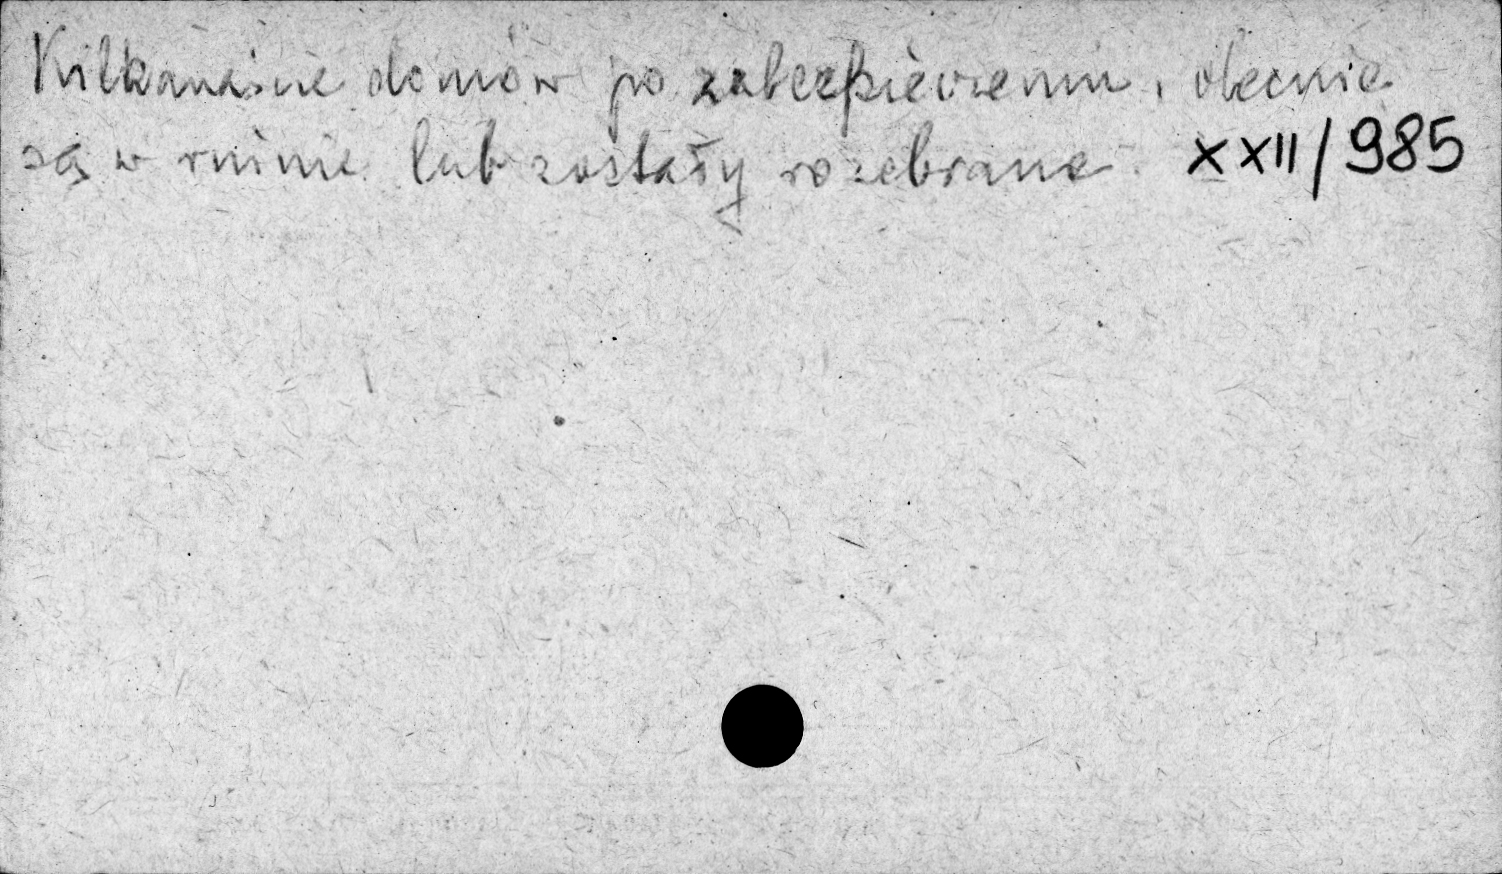 Kilkanaście domów po zabezpieczeniu, obecnie
są w ruinie lub zostały rozebrane. XXII/985